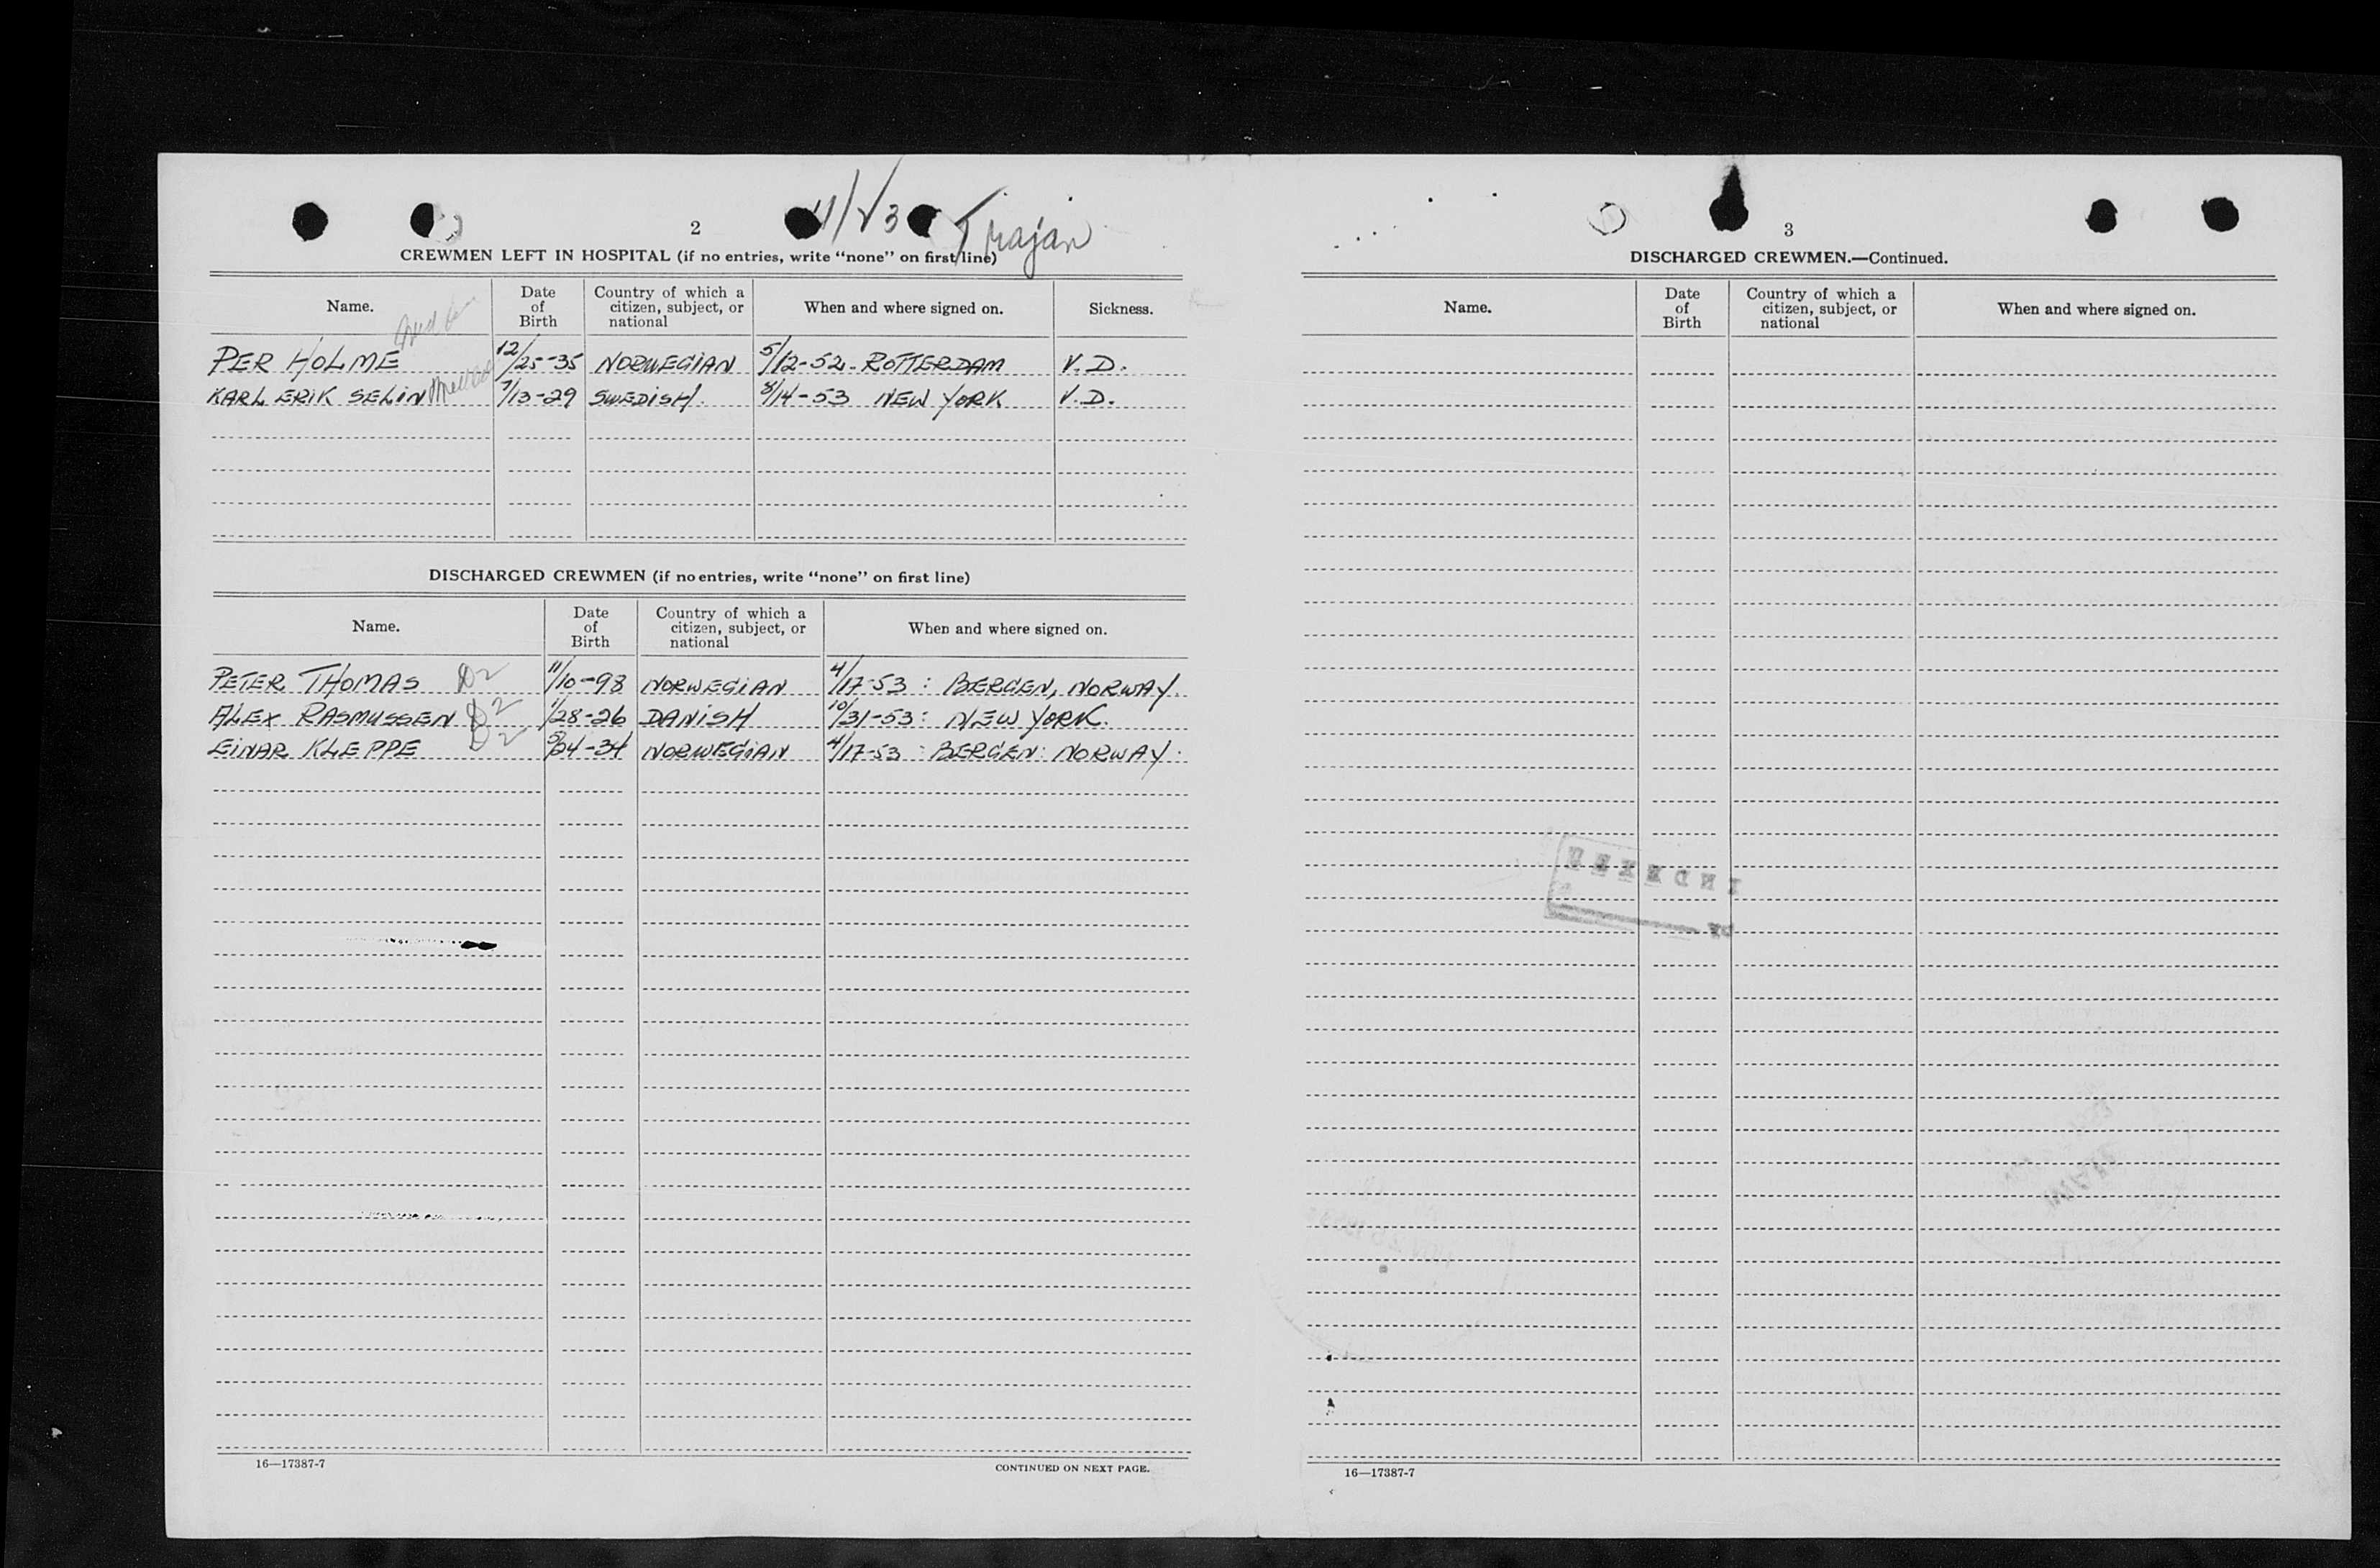 2
Trajan
CREWMEN LEFT IN HOSPITAL (if no entries, write “none” on first line)
Name. Date of Birth Country of which a citizen, subject, or national When and where signed on. Sickness.
PER HOLME 12/25-35 NORWEGIAN 5/12-52. ROTTERDAM V.D.
KARL ERIK SELIN 7/13-29 SWEDISH. 8/14-53 NEW YORK V.D.
DISCHARGED CREWMEN (if no entries, write “none” on first line)
Name. Date of Birth Country of which a citizen, subject, or national When and where signed on.
PETER THOMAS D2 11/10-98 NORWEGIAN 4/17-53 : BERGEN, NORWAY.
ALEX RASMUSSEN D2 1/28-26 DANISH 10/31-53: NEW YORK.
EINAR KLEPPE D2 5/24-34 NORWEGIAN 4/17-53 : BERGEN: NORWAY.
16—17387-7 CONTINUED ON NEXT PAGE.
3
DISCHARGED CREWMEN.—Continued.
Name. Date of Birth Country of which a citizen, subject, or national When and where signed on.
INDEXED
16—17387-7